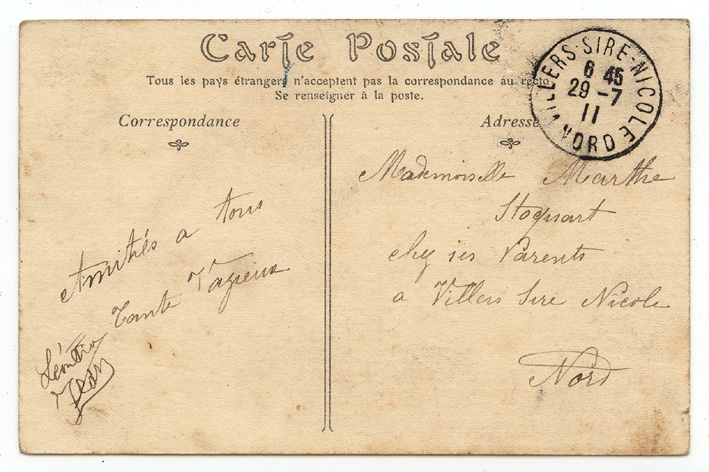 Carte Postale
Tous les pays étrangers n'acceptent pas la correspondance au recto
Se renseigner à la poste.
Correspondance
Adresse
VILLERS-SIRE-NICOLE
6 45
29 -7
11
NORD
Amitiés a tous
Tante
Jean
Mademoiselle Marthe
Stoquart
chez ses Parents
a Villers Sire Nicole
Nord